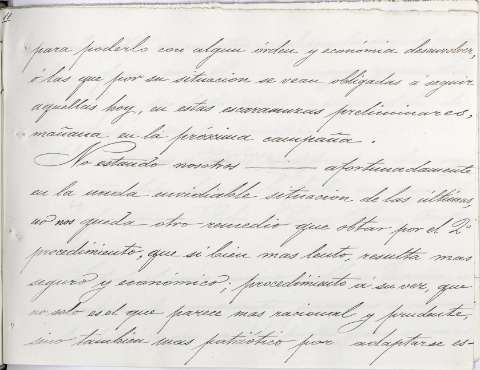 11
para poderlo con algun órden y económia desenvolver,
ó las que por su situacion se vean obligadas á seguir
aquellas hoy, en estas escaramuzas preliminares,
mañana en la próxima campaña.
No estando nosotros — afortunadamente
en la nada invidiable situacion de las últimas,
no nos queda otro remedio que obtar por el 2º
procedimiento, que si bien mas lento, resulta mas
seguro y económico; procedimiento á su vez, que
no solo es el que parece mas racional y prudente,
sino tambien mas patriótico por adaptarse es-